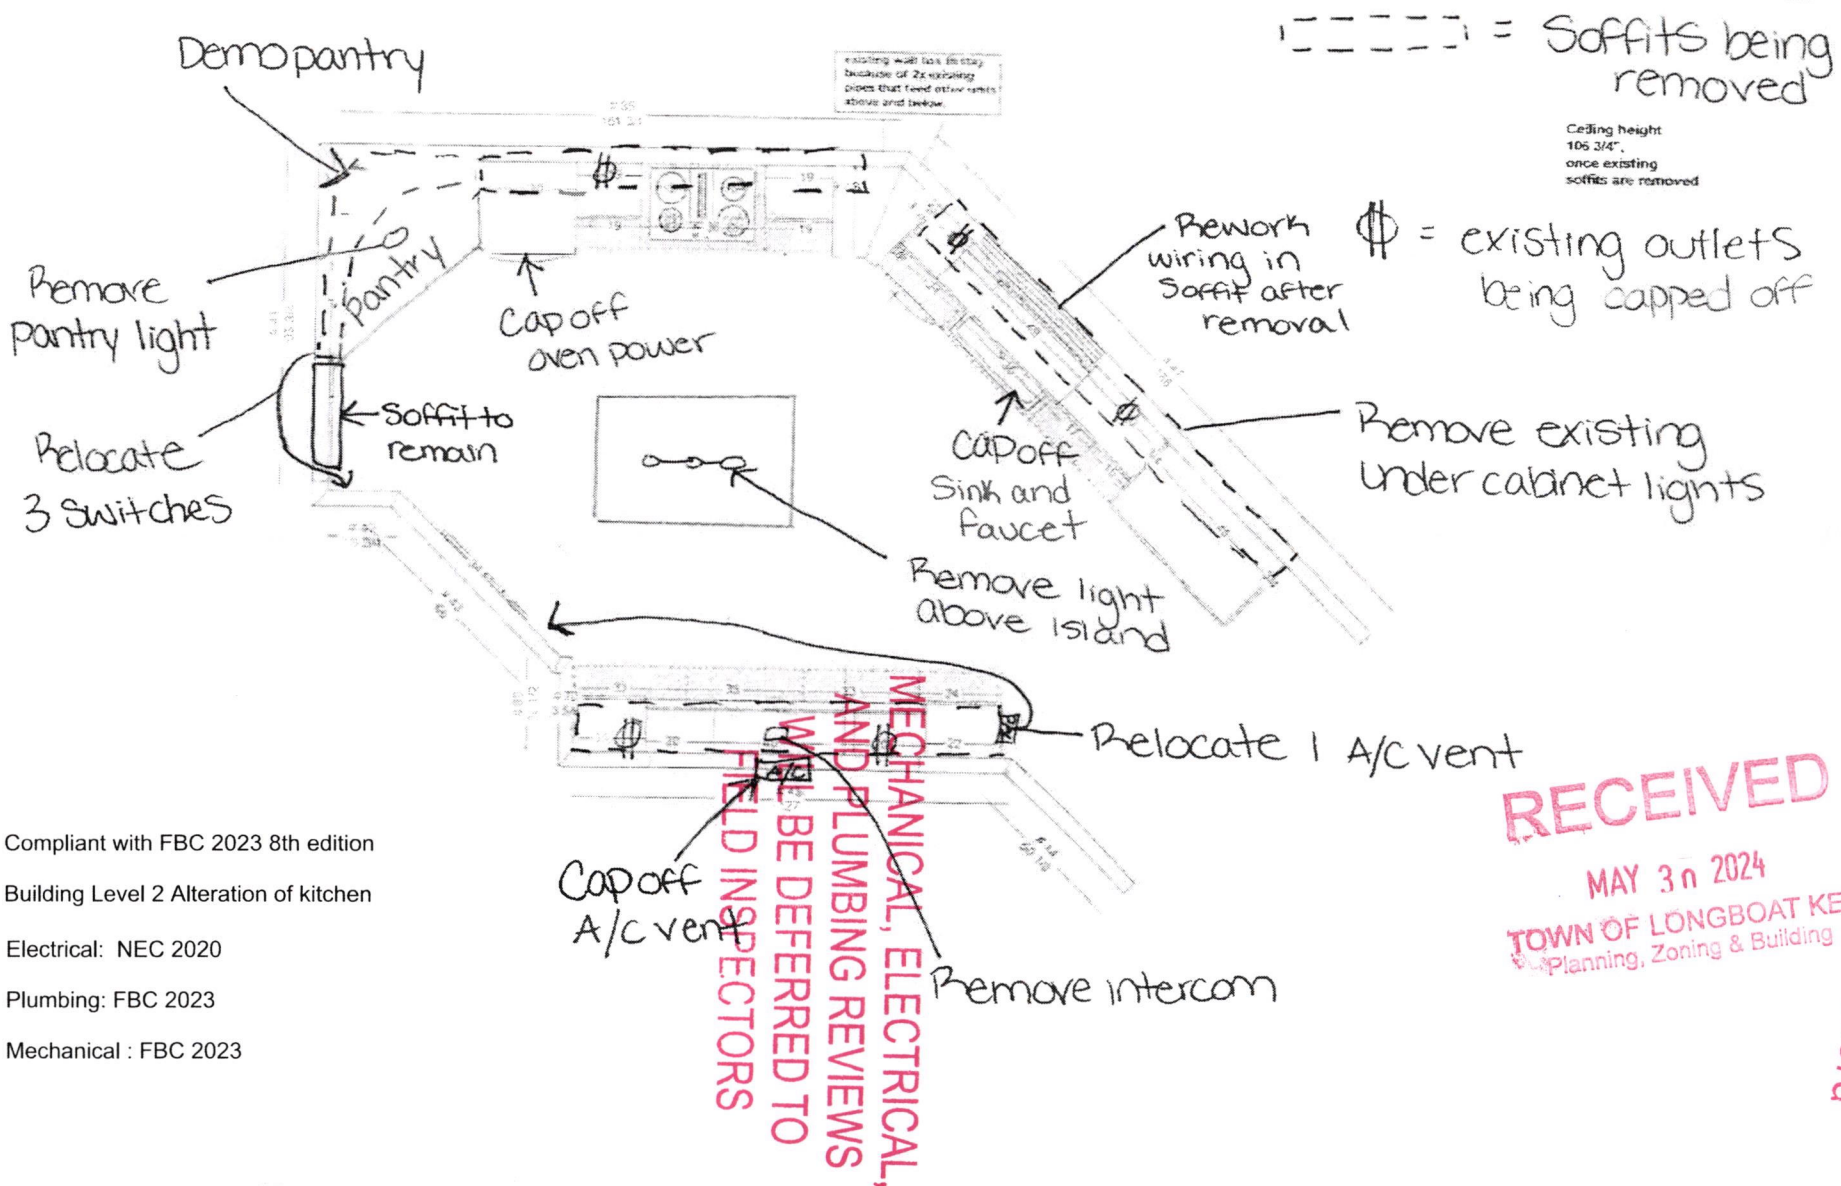 Demo pantry
existing wall has to stay
because of 2x existing
pipes that feed other units
above and below.
= Soffits being
removed
Ceiling height
106 3/4",
once existing
soffits are removed
= existing outlets
being capped off
Rework
wiring in
Soffit after
removal
Remove
pantry light
pantry
Cap off
oven power
Soffit to
remain
Relocate
3 Switches
Cap off
Sink and
faucet
Remove existing
under cabinet lights
Remove light
above island
Relocate 1 A/C vent
A/C
Cap off
A/C vent
Remove intercom
MECHANICAL, ELECTRICAL,
AND PLUMBING REVIEWS
WILL BE DEFERRED TO
FIELD INSPECTORS
RECEIVED
MAY 30 2024
TOWN OF LONGBOAT KE
Planning, Zoning & Building
Compliant with FBC 2023 8th edition
Building Level 2 Alteration of kitchen
Electrical: NEC 2020
Plumbing: FBC 2023
Mechanical : FBC 2023